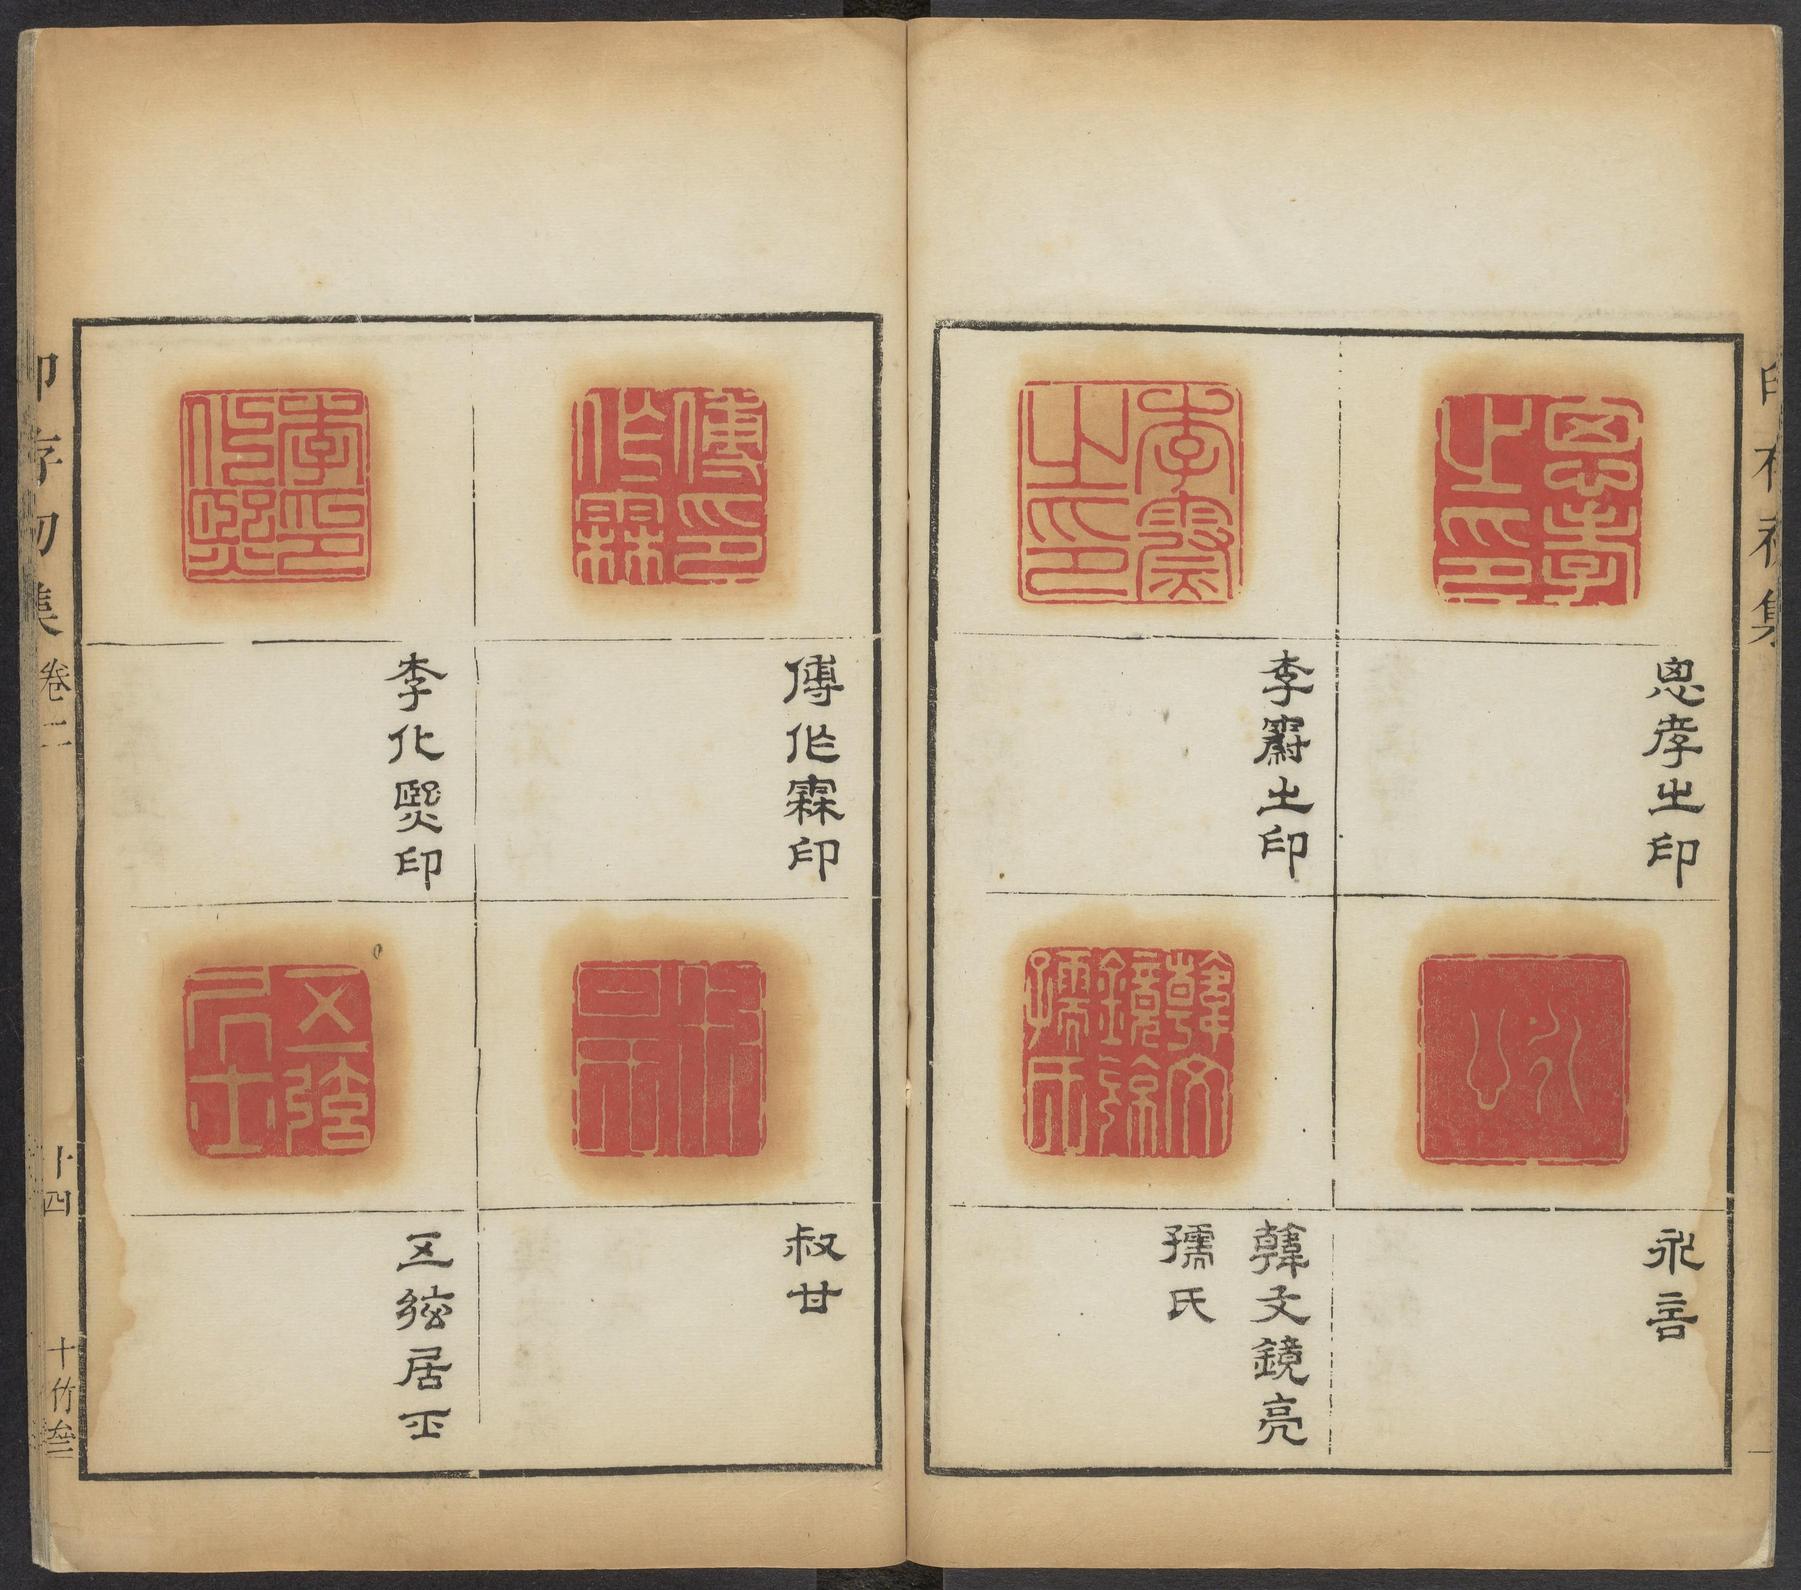 印存初集
恖孝㞢印
李𦋺㞢印
永言
韓文鏡亮
孺氏
傅作霖印
李化熙印
叔甘
五絃居士
印存初集 卷二 十四 十竹叁